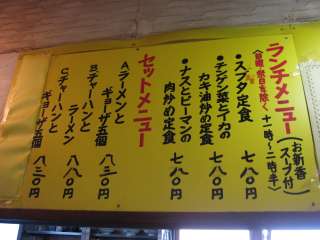 ランチメニュー
(日曜・祭日を除く 十一時〜二時半)
(お新香 スープ付)
●スブタ定食 七八〇
●チンゲン菜とイカの
カキ油炒め定食 七八〇
●ナスとピーマンの
肉炒め定食 七八〇
セットメニュー
A.ラーメンと
ギョーザ五個 八三〇円
B.チャーハンと
ラーメン 八八〇円
C.チャーハンと
ギョーザ五個 八三〇円